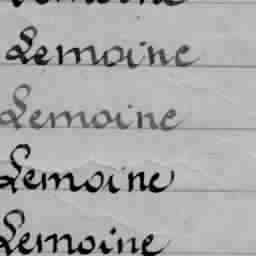 Lemoine
Lemoine
Lemoine
Lemoine
Lemoine